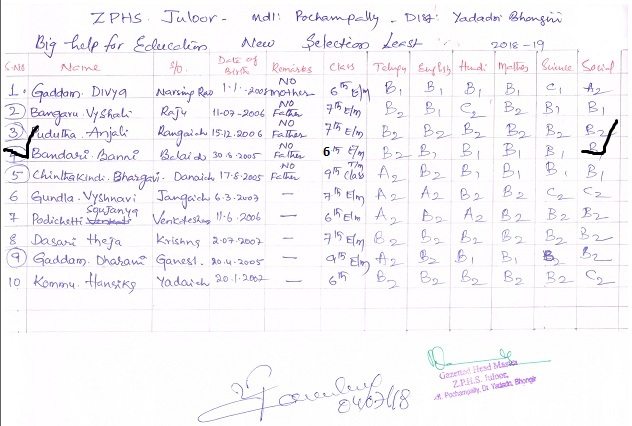 ZPHS. Juloor - Mdl: Pochampally, Dist: Yadadri Bhongiri
Big help for Education New Selection Least 2018-19
S.No Name S/o. Date of Birth Remarks Class Telugu English Hindi Maths Science Social
1. Gaddam. Divya Narsing Rao 1-1-2005 NO mother 6th E/m B1 B1 B1 B1 C1 A2
2 Bangaru Vyshali Raju 11-07-2006 NO Father 7th E/m B2 B1 C2 B2 B1 B1
3 Anjali Rangaiah 15.12.2006 NO Father 7th E/m B2 B2 B2 B2 B2 B2
4 Bandari. Banni Balaiah 30.8.2005 NO Father 6th E/m B2 B1 B1 B1 B1 B
5 Chinthakindi. Bhargavi Danaiah 17.8.2005 NO Father 9th T/m Class A2 B2 B1 B1 B1 B1
6 Gundla. Vyshnavi Jangaiah 6.3.2007 — 7th E/m A2 A2 B2 B2 C2 C2
7 Podichetti Soujanya Venkatesh 11.6.2006 — 6th E/m A2 B2 A2 B2 B2 B2
8 Dasari theja Krishna 2.07.2007 — 7th E/m B2 B2 B2 B2 B2 B2
9 Gaddam. Dharani Ganesh 20.4.2005 — 9th E/m A2 B2 B1 B1 B2 B2
10 Kommu. Hansika Yadaiah 20.1.2007 — 6th B2 B2 B2 B2 B2 C2
04/07/18
Gazetted Head Master
Z.P.H.S. Juloor,
M. Pochampally, Dt. Yadadri, Bhongir